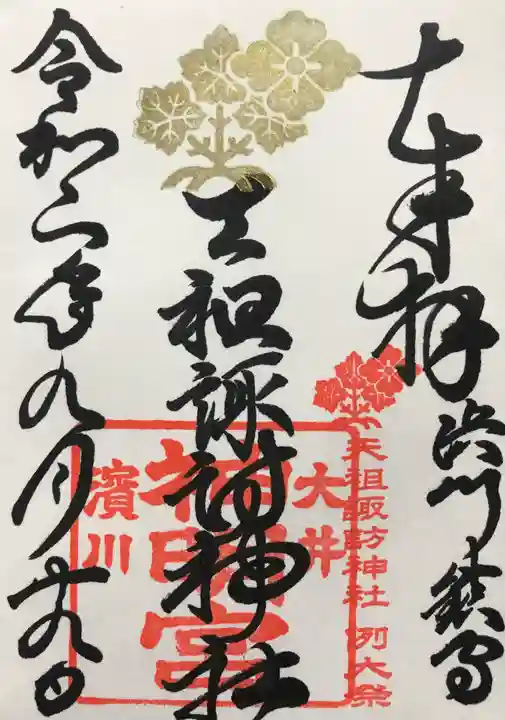 奉拝 浜川鎮守
天祖諏訪神社 例大祭
天祖諏訪神社
大井
神明宮
濱川
令和二年九月